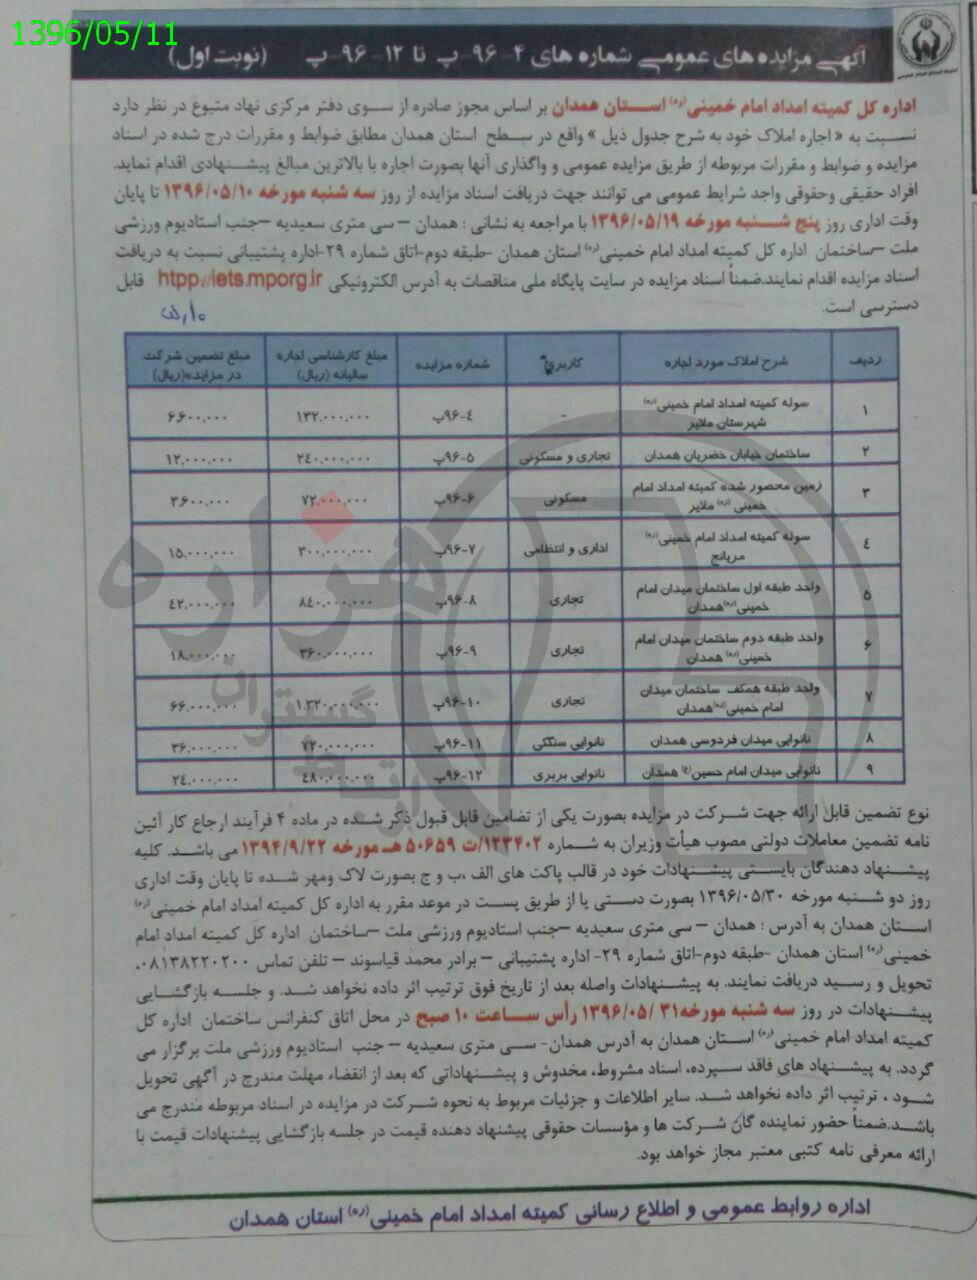 1396/05/11
آگهی مزایده های عمومی شماره های ۴-۹۶-پ تا ۱۲-۹۶-پ (نوبت اول)
اداره کل کمیته امداد امام خمینی(ره) استان همدان بر اساس مجوز صادره از سوی دفتر مرکزی نهاد متبوع در نظر دارد
نسبت به « اجاره املاک خود به شرح جدول ذیل » واقع در سطح استان همدان مطابق ضوابط و مقررات درج شده در اسناد
مزایده و ضوابط و مقررات مربوطه از طریق مزایده عمومی و واگذاری آنها بصورت اجاره با بالاترین مبالغ پیشنهادی اقدام نماید.
افراد حقیقی وحقوقی واجد شرایط عمومی می توانند جهت دریافت اسناد مزایده از روز سه شنبه مورخه ۱۳۹۶/۰۵/۱۰ تا پایان
وقت اداری روز پنج شنبه مورخه ۱۳۹۶/۰۵/۱۹ با مراجعه به نشانی : همدان – سی متری سعیدیه –جنب استادیوم ورزشی
ملت –ساختمان اداره کل کمیته امداد امام خمینی(ره) استان همدان -طبقه دوم-اتاق شماره ۲۹-اداره پشتیبانی نسبت به دریافت
اسناد مزایده اقدام نمایند.ضمناً اسناد مزایده در سایت پایگاه ملی مناقصات به آدرس الکترونیکی htpp://iets.mporg.ir قابل
دسترسی است.
ردیف شرح املاک مورد اجاره کاربری شماره مزایده مبلغ کارشناسی اجاره سالیانه (ریال) مبلغ تضمین شرکت در مزایده(ریال)
۱ سوله کمیته امداد امام خمینی(ره) شهرستان ملایر - ۹۶-۴پ ۱۳۲,۰۰۰,۰۰۰ ۶,۶۰۰,۰۰۰
۲ ساختمان خیابان خضریان همدان تجاری و مسکونی ۹۶-۵پ ۲۴۰,۰۰۰,۰۰۰ ۱۲,۰۰۰,۰۰۰
۳ زمین محصور شده کمیته امداد امام خمینی(ره) ملایر مسکونی ۹۶-۶پ ۷۲,۰۰۰,۰۰۰ ۳,۶۰۰,۰۰۰
۴ سوله کمیته امداد امام خمینی(ره) مریانج اداری و انتظامی ۹۶-۷پ ۳۰۰,۰۰۰,۰۰۰ ۱۵,۰۰۰,۰۰۰
۵ واحد طبقه اول ساختمان میدان امام خمینی(ره)همدان تجاری ۹۶-۸پ ۸۴۰,۰۰۰,۰۰۰ ۴۲,۰۰۰,۰۰۰
۶ واحد طبقه دوم ساختمان میدان امام خمینی(ره) همدان تجاری ۹۶-۹پ ۳۶۰,۰۰۰,۰۰۰ ۱۸,۰۰۰,۰۰۰
۷ واحد طبقه همکف ساختمان میدان امام خمینی(ره)همدان تجاری ۹۶-۱۰پ ۱,۳۲۰,۰۰۰,۰۰۰ ۶۶,۰۰۰,۰۰۰
۸ نانوایی میدان فردوسی همدان نانوایی سنگکی ۹۶-۱۱پ ۷۲۰,۰۰۰,۰۰۰ ۳۶,۰۰۰,۰۰۰
۹ نانوایی میدان امام حسین(ع) همدان نانوایی بربری ۹۶-۱۲پ ۴۸۰,۰۰۰,۰۰۰ ۲۴,۰۰۰,۰۰۰
هزاره
گستران
نوع تضمین قابل ارائه جهت شرکت در مزایده بصورت یکی از تضامین قابل قبول ذکر شده در ماده ۴ فرآیند ارجاع کار آئین
نامه تضمین معاملات دولتی مصوب هیأت وزیران به شماره ۱۲۳۴۰۲/ت ۵۰۶۵۹ هـ مورخه ۱۳۹۴/۹/۲۲ می باشد. کلیه
پیشنهاد دهندگان بایستی پیشنهادات خود در قالب پاکت های الف ،ب و ج بصورت لاک ومهر شده تا پایان وقت اداری
روز دو شنبه مورخه ۱۳۹۶/۰۵/۳۰ بصورت دستی یا از طریق پست در موعد مقرر به اداره کل کمیته امداد امام خمینی(ره)
استان همدان به آدرس : همدان – سی متری سعیدیه –جنب استادیوم ورزشی ملت –ساختمان اداره کل کمیته امداد امام
خمینی(ره) استان همدان -طبقه دوم-اتاق شماره ۲۹- اداره پشتیبانی – برادر محمد قیاسوند – تلفن تماس ۰۸۱۳۸۲۲۰۲۰۰،
تحویل و رسید دریافت نمایند. به پیشنهادات واصله بعد از تاریخ فوق ترتیب اثر داده نخواهد شد. و جلسه بازگشایی
پیشنهادات در روز سه شنبه مورخه۳۱ /۱۳۹۶/۰۵ رأس ساعت ۱۰ صبح در محل اتاق کنفرانس ساختمان اداره کل
کمیته امداد امام خمینی(ره) استان همدان به آدرس همدان- سی متری سعیدیه – جنب استادیوم ورزشی ملت برگزار می
گردد. به پیشنهاد های فاقد سپرده، اسناد مشروط، مخدوش و پیشنهاداتی که بعد از انقضاء مهلت مندرج در آگهی تحویل
شود ، ترتیب اثر داده نخواهد شد. سایر اطلاعات و جزئیات مربوط به نحوه شرکت در مزایده در اسناد مربوطه مندرج می
باشد.ضمناً حضور نماینده گان شرکت ها و مؤسسات حقوقی پیشنهاد دهنده قیمت در جلسه بازگشایی پیشنهادات قیمت با
ارائه معرفی نامه کتبی معتبر مجاز خواهد بود.
اداره روابط عمومی و اطلاع رسانی کمیته امداد امام خمینی(ره) استان همدان